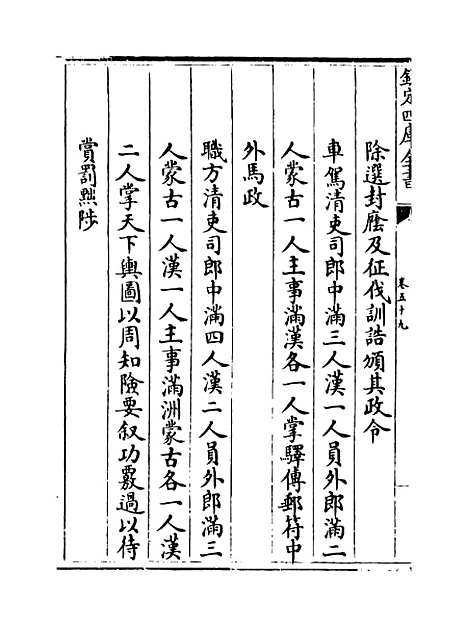 欽定四庫全書
卷五十九
除選封廕及征伐訓誥頒其政令
車駕清吏司郎中滿三人漢一人員外郎滿二
人蒙古一人主事滿漢各一人掌驛傳郵符中
外馬政
職方清吏司郎中滿四人漢二人員外郎滿三
人蒙古一人漢一人主事滿洲蒙古各一人漢
二人掌天下輿圖以周知險要叙功覈過以待
賞罰黜陟